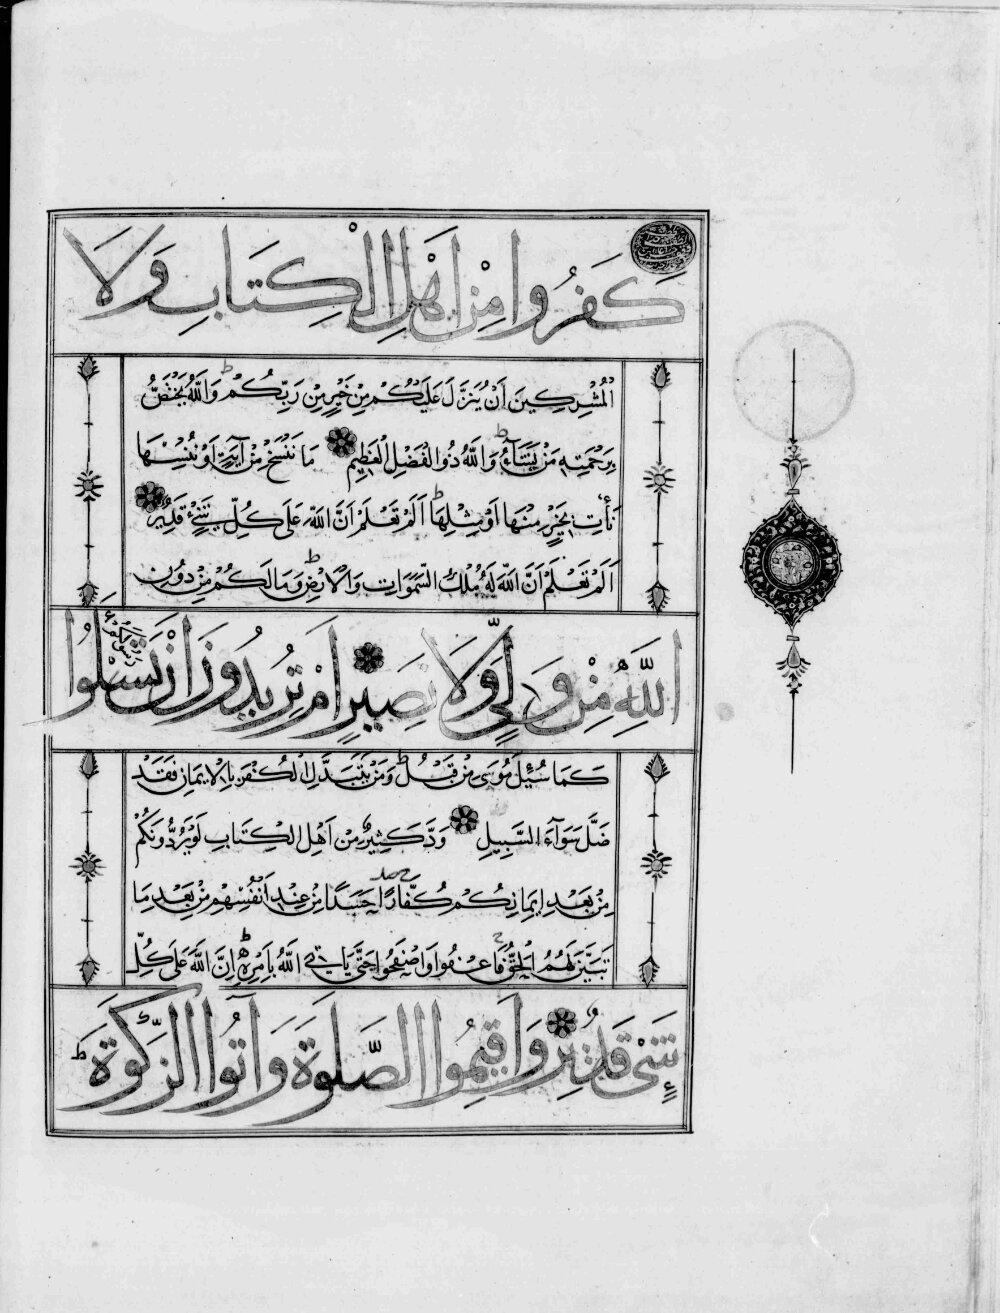 كَفَرُوا مِنْ اَهْلِ الْكِتَابِ وَلَا
الْمُشْرِكِينَ اَنْ يُنَزَّلَ عَلَيْكُمْ مِنْ خَيْرٍ مِنْ رَبِّكُمْ ط وَاللّٰهُ يَخْتَصُّ
بِرَحْمَتِهِ مَنْ يَشَآءُ ط وَاللّٰهُ ذُوالْفَضْلِ الْعَظِيمِ مَا نَنْسَخْ مِنْ آيَةٍ اَوْ نُنْسِهَا
نَأْتِ بِخَيْرٍ مِنْهَا اَوْ مِثْلِهَا ط اَلَمْ تَعْلَمْ اَنَّ اللّٰهَ عَلَى كُلِّ شَيْءٍ قَدِيرٌ
اَلَمْ تَعْلَمْ اَنَّ اللّٰهَ لَهُ مُلْكُ السَّمٰوَاتِ وَالْاَرْضِ ط وَمَا لَكُمْ مِنْ دُونِ
اللّٰهِ مِنْ وَلِيٍّ وَلَا نَصِيرٍ اَمْ تُرِيدُونَ اَنْ تَسْـَٔلُوا رَسُولَكُمْ
كَمَا سُئِلَ مُوسَى مِنْ قَبْلُ ط وَمَنْ يَتَبَدَّلِ الْكُفْرَ بِالْاِيمَانِ فَقَدْ
ضَلَّ سَوَآءَ السَّبِيلِ وَدَّ كَثِيرٌ مِنْ اَهْلِ الْكِتَابِ لَوْ يَرُدُّونَكُمْ
مِنْ بَعْدِ اِيمَانِكُمْ كُفَّارًا حَسَدًا مِنْ عِنْدِ اَنْفُسِهِمْ مِنْ بَعْدِ مَا
تَبَيَّنَ لَهُمُ الْحَقُّ ج فَاعْفُوا وَاصْفَحُوا حَتَّى يَاْتِيَ اللّٰهُ بِاَمْرِهِ ط اِنَّ اللّٰهَ عَلَى كُلِّ
شَيْءٍ قَدِيرٌ وَاَقِيمُوا الصَّلٰوةَ وَآتُوا الزَّكٰوةَ ط